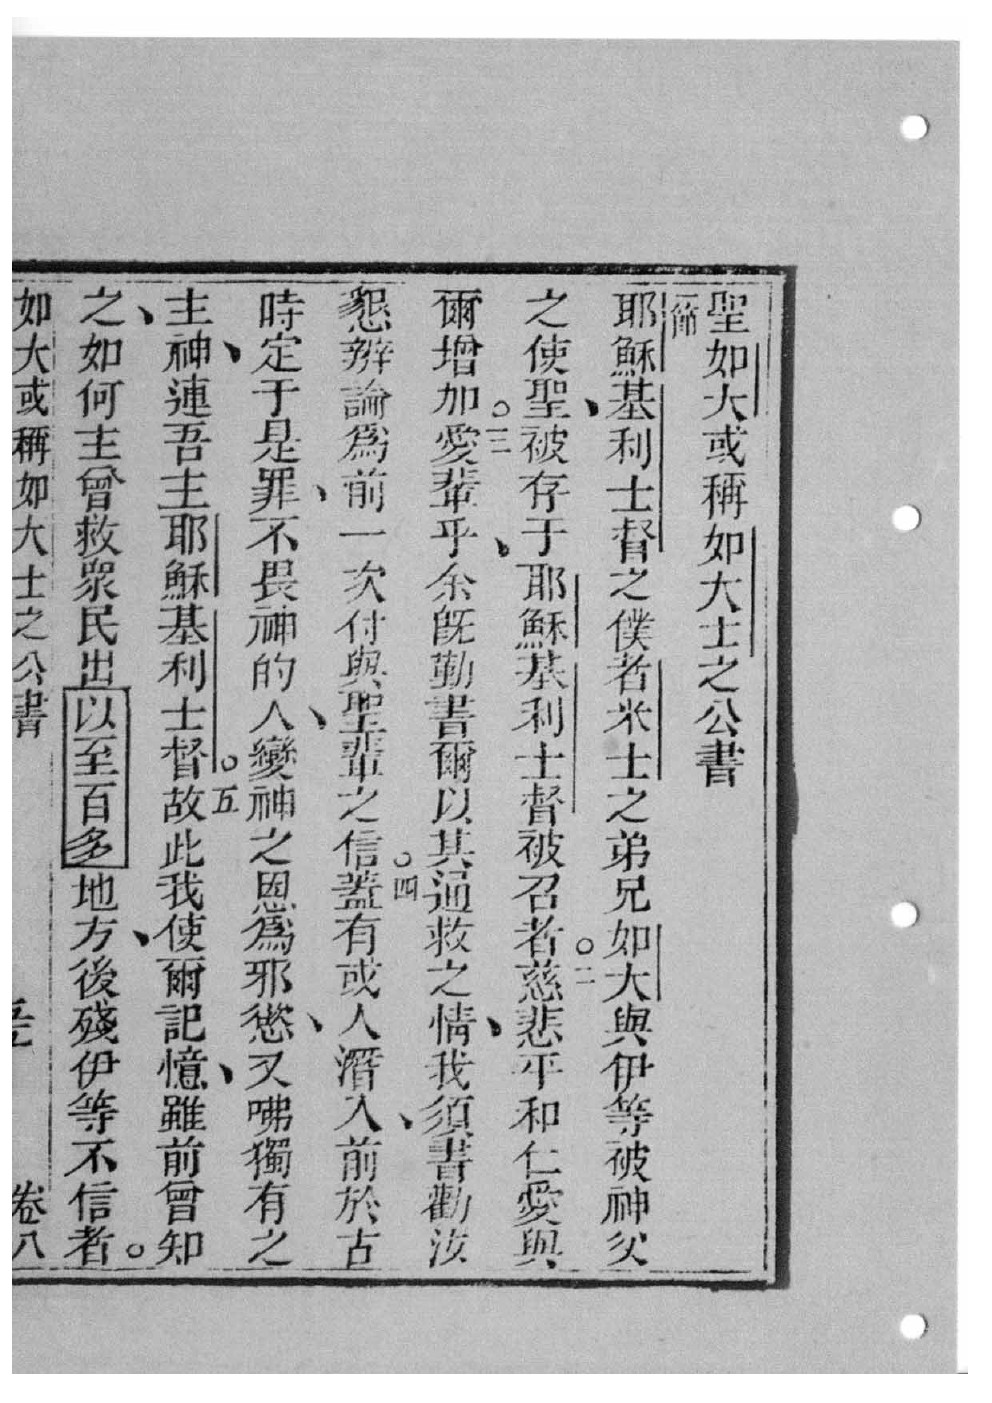 聖如大或稱如大士之公書
一節
耶穌基利士督之僕者米士之弟兄如大與伊等被神父
之使聖、被存于耶穌基利士督被召者。二慈悲平和仁愛與
爾增加。三愛輩乎、余既勤書爾以其通救之情、我須書勸汝
懇辨論為前一次付與聖輩之信。四蓋有或人潛入、前於古
時定于是罪、不畏神的人、變神之恩為邪慾、又咈獨有之
主神、連吾主耶穌基利士督。五故此我使爾記憶、雖前曾知
之、如何主曾救眾民出以至百多地方、後殘伊等不信者。
如大或稱如大士之公書
卷八